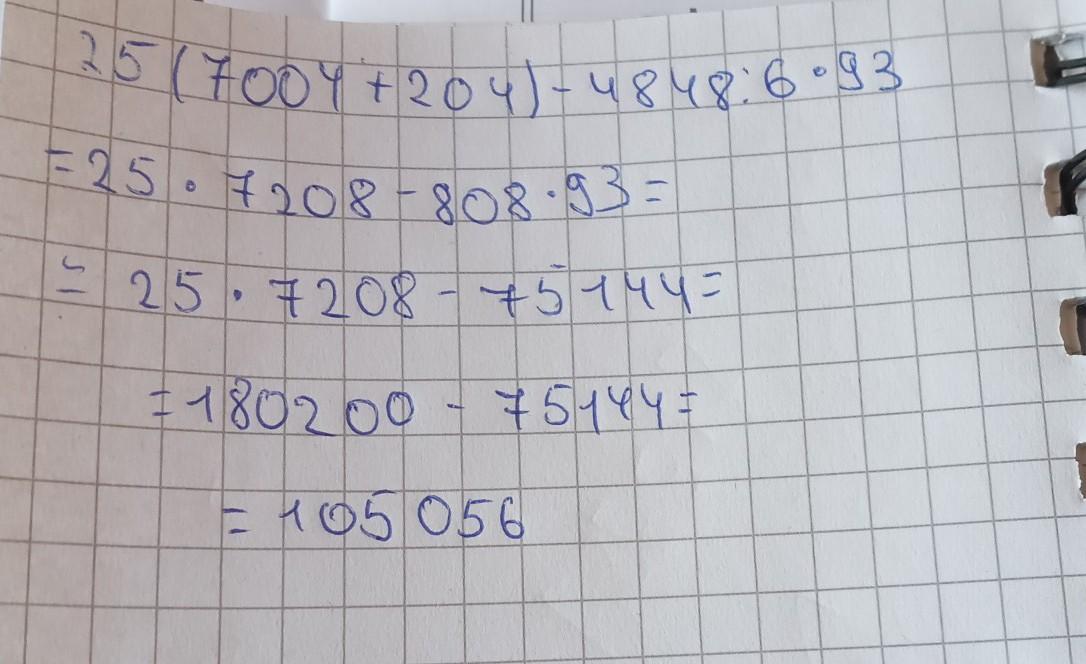 25(7004+204)-4848:6·93
=25·7208-808·93=
=25·7208-75144=
=180200-75144=
=105056